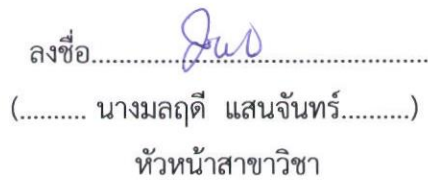 ลงชื่อ................................................
(.......... นางมลฤดี แสนจันทร์..........)
หัวหน้าสาขาวิชา